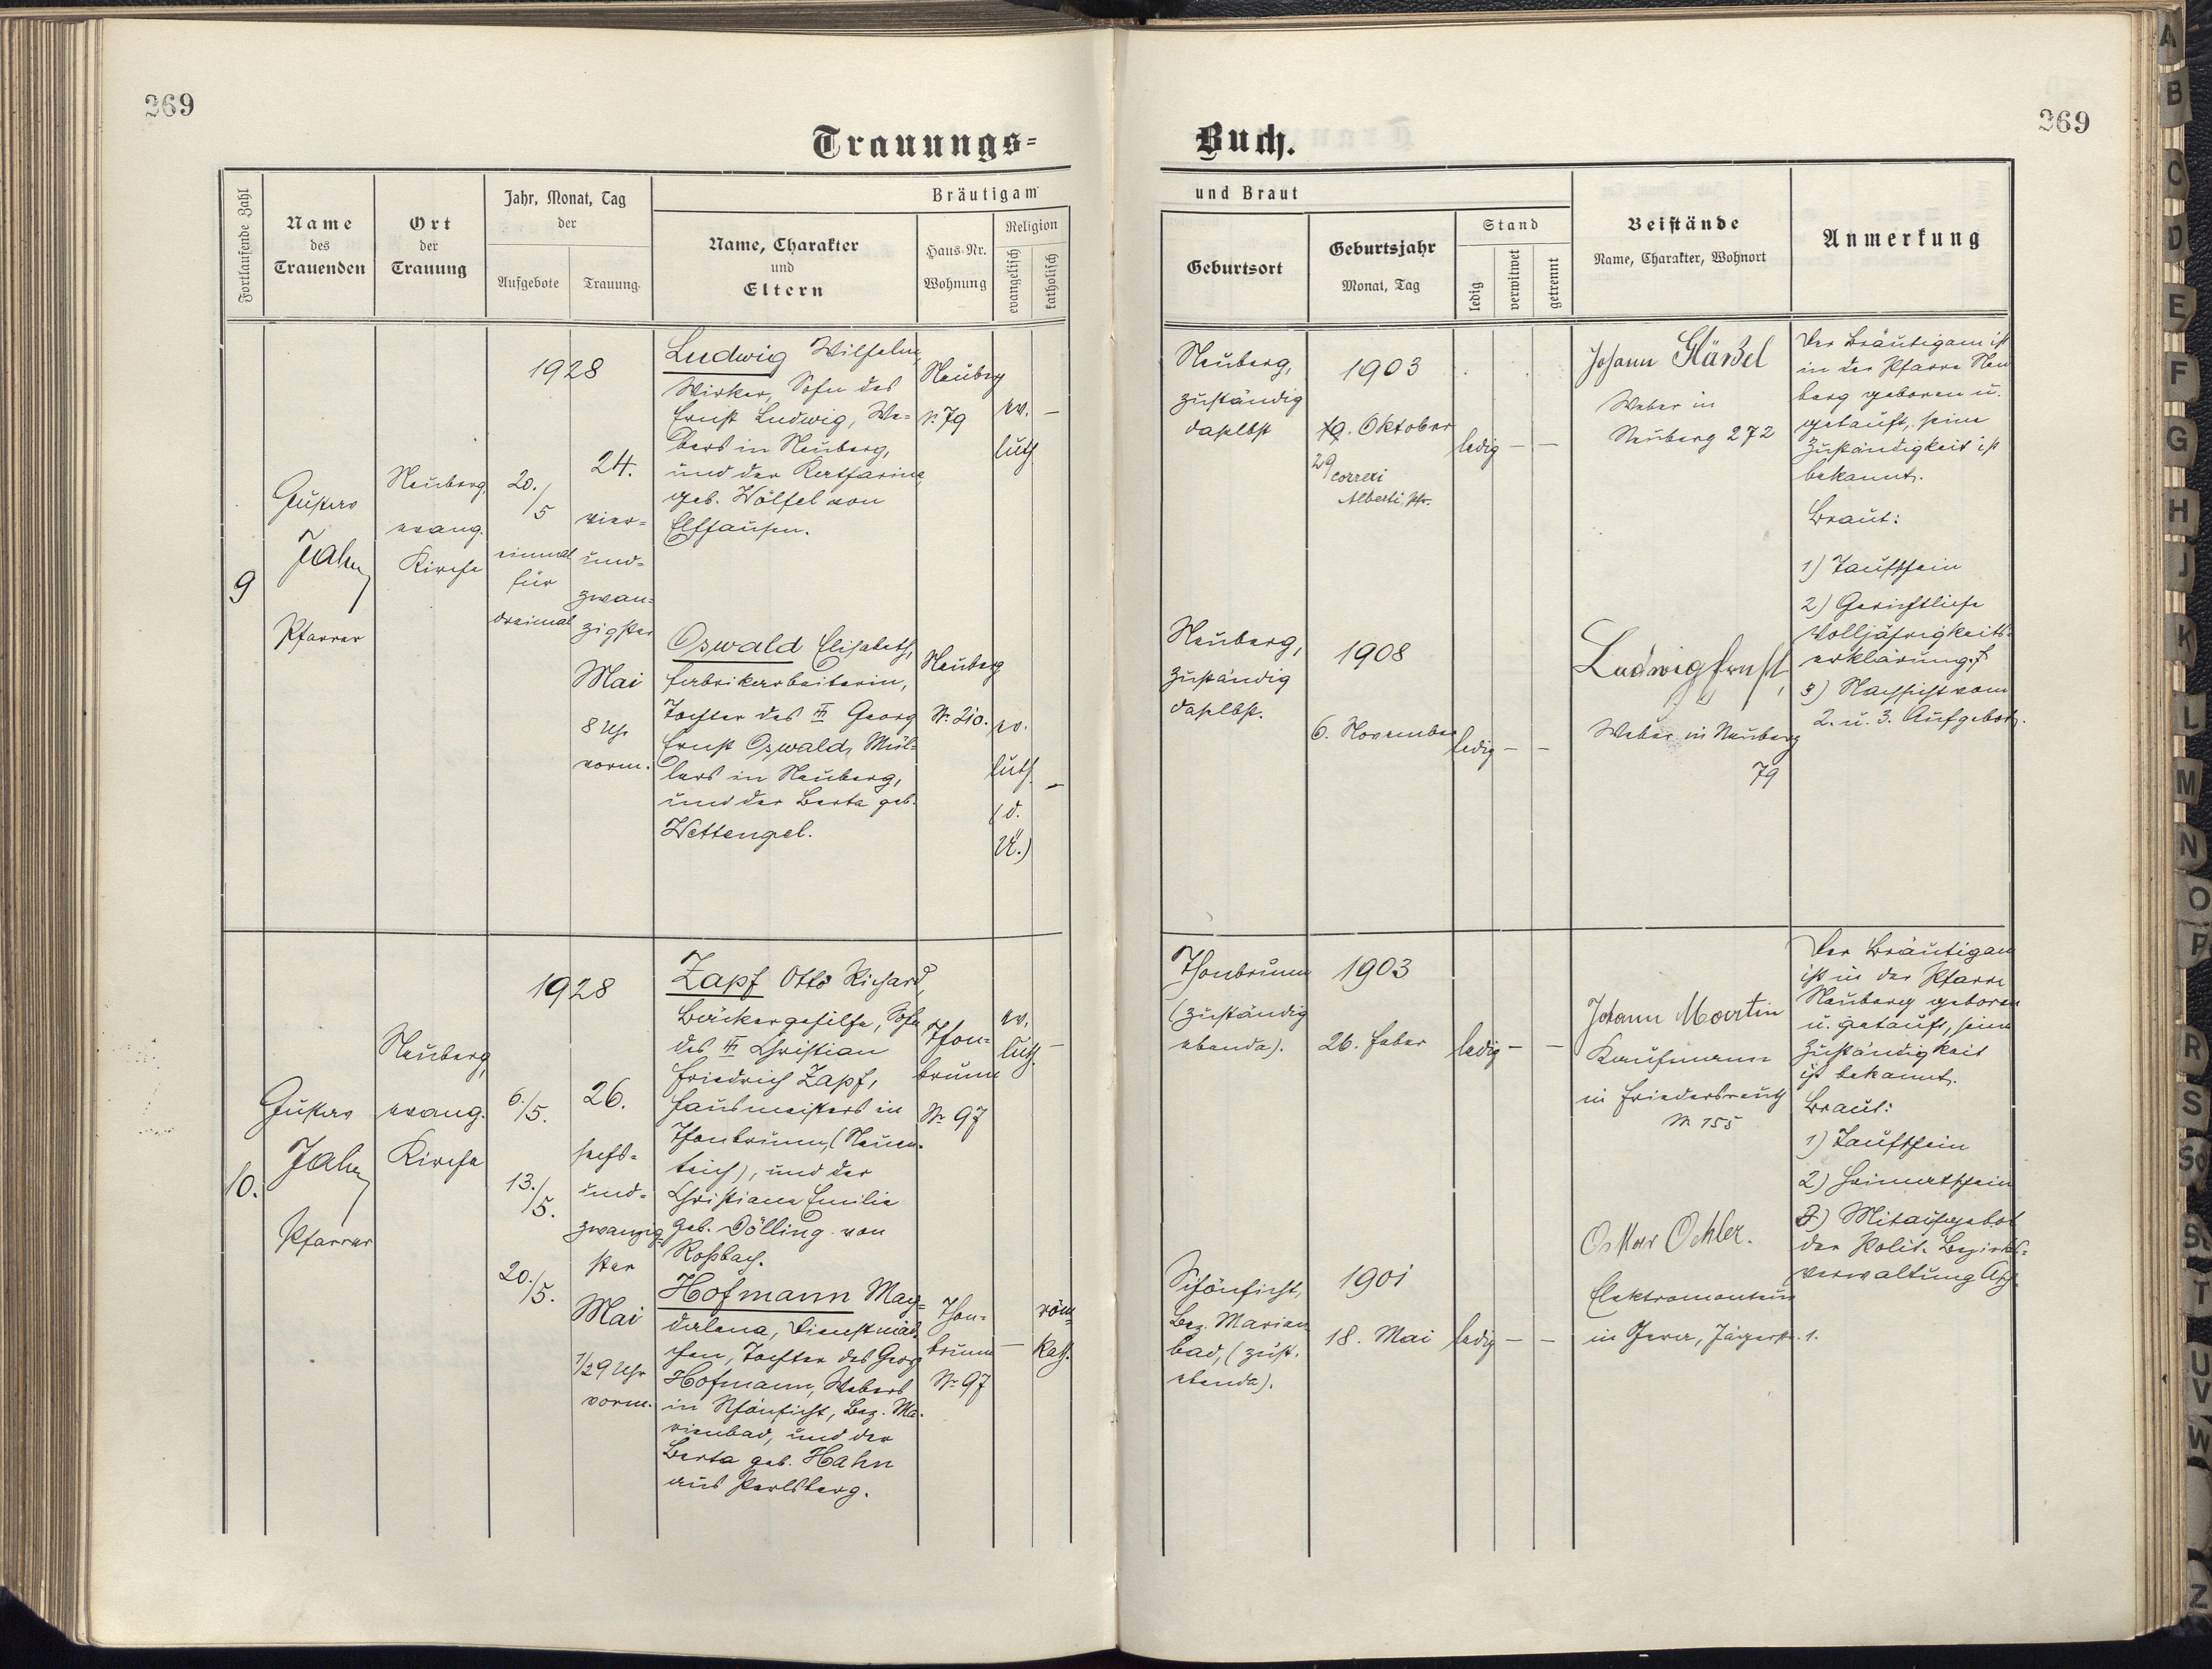 269
269
Trauungs=
Buch.
Fortlaufende Zahl
Name
des
Trauenden
Ort
der
Trauung
Jahr, Monat, Tag
der
Aufgebote
Trauung
Bräutigam
Name, Charakter
und
Eltern
Haus-Nr.
Wohnung
Religion
evangelisch
katholisch
und Braut
Geburtsort
Geburtsjahr
Monat, Tag
Stand
ledig
verwitwet
getrennt
Beistände
Name, Charakter, Wohnort
Anmerkung
9
Gustav
Jahn
Pfarrer
Neuberg,
evang.
Kirche
1928
20.
/5
einmal
für
dreimal
24.
vier=
und=
zwan=
zigster
Mai
8 Uhr
vorm.
Ludwig Wilhelm,
Wirker, Sohn des
Ernst Ludwig, We=
bers in Neuberg,
und der Katharina,
geb. Wölfel von
Elfhausen.
Neuberg
Nr. 79
ev.
luth
–
Oswald Elisabeth,
Fabrikarbeiterin,
Tochter des ♰ Georg
Ernst Oswald, Mül=
lers in Neuberg,
und der Berta geb.
Wettengel.
Neuberg
Nr. 210.
ev.
luth.
(d.
Ü.)
–
Neuberg,
zuständig
daselbst
1903
19. Oktober
29
correxi
Alberti, Pfr.
ledig – –
Neuberg,
zuständig
daselbst.
1908
6. November
ledig – –
Johann Gläßel
Weber in
Neuberg 272
Ludwig Ernst,
Weber in Neuberg
79
Der Bräutigam ist
in der Pfarre Neu
berg geboren u.
getauft, seine
Zuständigkeit ist
bekannt.
Braut:
1) Taufschein
2) Gerichtliche
Volljährigkeits=
erklärung.
3) Nachsicht vom
2. u. 3. Aufgebot.
10.
Gustav
Jahn
Pfarrer
Neuberg,
evang.
Kirche
1928
6./5.
13./5.
20./5.
26.
sechs=
und=
zwanzig=
ster
Mai
1/2 9 Uhr
vorm.
Zapf Otto Richard,
Bäckergehilfe, Sohn
des ♰ Christian
Friedrich Zapf,
Hausmeisters in
Thonbrunn, (Neuen=
teich), und der
Christiane Emilie
geb. Dölling von
Roßbach.
Thon=
brunn
Nr. 97
ev.
luth.
–
Hofmann Mag=
dalena, Dienstmäd
chen, Tochter des Georg
Hofmann, Webers
in Schönficht, Bez. Ma=
rienbad, und der
Berta geb. Hahn
aus Perlsberg.
Thon=
brunn
Nr. 97
–
röm=
kath.
Thonbrunn
(zuständig
ebenda).
1903
26. Feber
ledig – –
Schönficht,
Bez. Marien
bad, (zust.
ebenda).
1901
18. Mai
ledig – –
Johann Martin
Kaufmann
in Friedersreuth
Nr 155
Oskar Oehler.
Elektromonteur
in Gera, Jägerstr. 1.
Der Bräutigam
ist in der Pfarre
Neuberg geboren
u. getauft, seine
Zuständigkeit
ist bekannt.
Braut:
1) Taufschein
2) Heimatschein
3) Mitaufgebot
der Polit. Bezirks=
verwaltung Asch.
A
B
C
D
E
F
G
H
J
K
L
M
N
O
P
R
S
St
T
U
V
W
Z